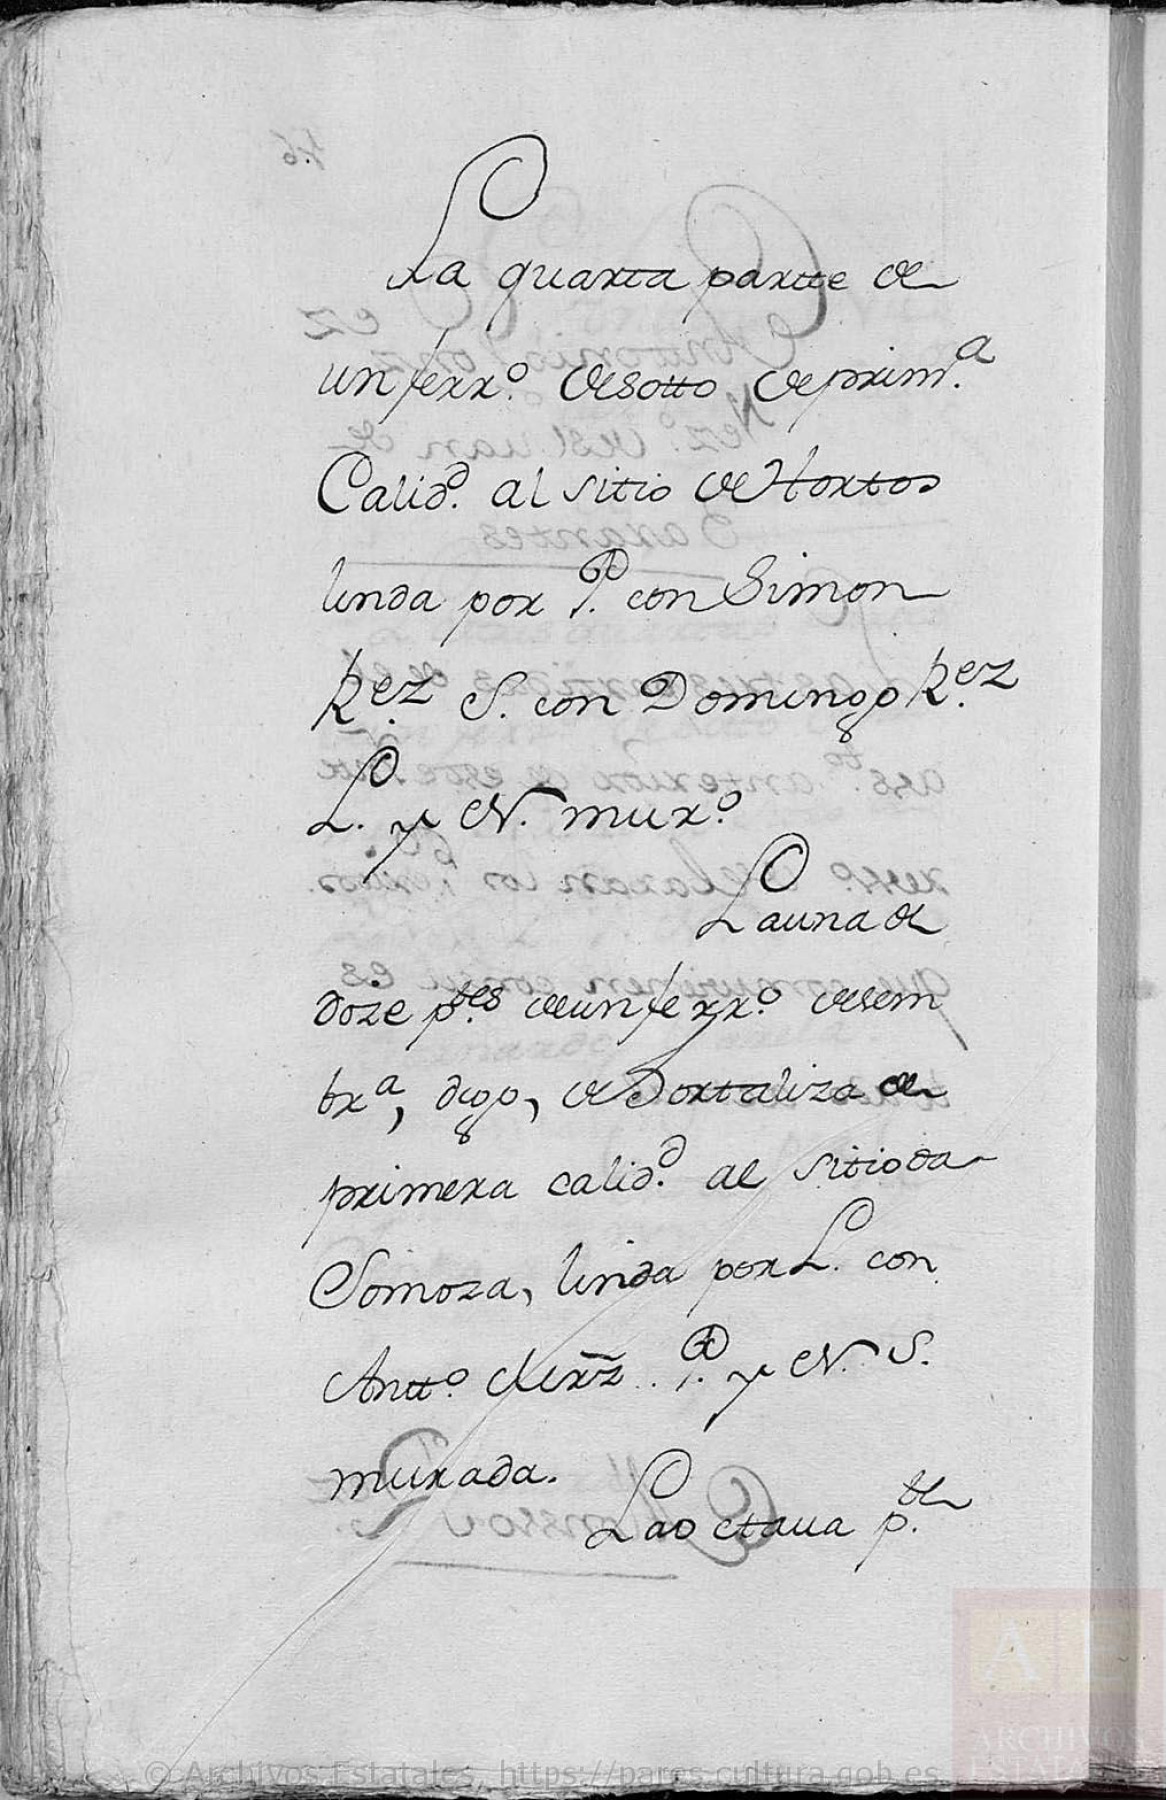 La quarta partte de
un ferr.º de sotto de prim.ª
Calid.d al sitio de Hortos
linda por P. con Simon
Rez S. con Domingo Rez
L. y N. mur.º
La una de
doze p.tes de un ferr.º de sem
br.ª, digo, de Hortaliza de
primera calid.d al sitio da
Somoza, linda por L. con
Antt.º P. y N. S.
murada.
La octaua p.te
© Archivos Estatales, https://pares.cultura.gob.es
AE
ARCHIVOS
ESTATALES